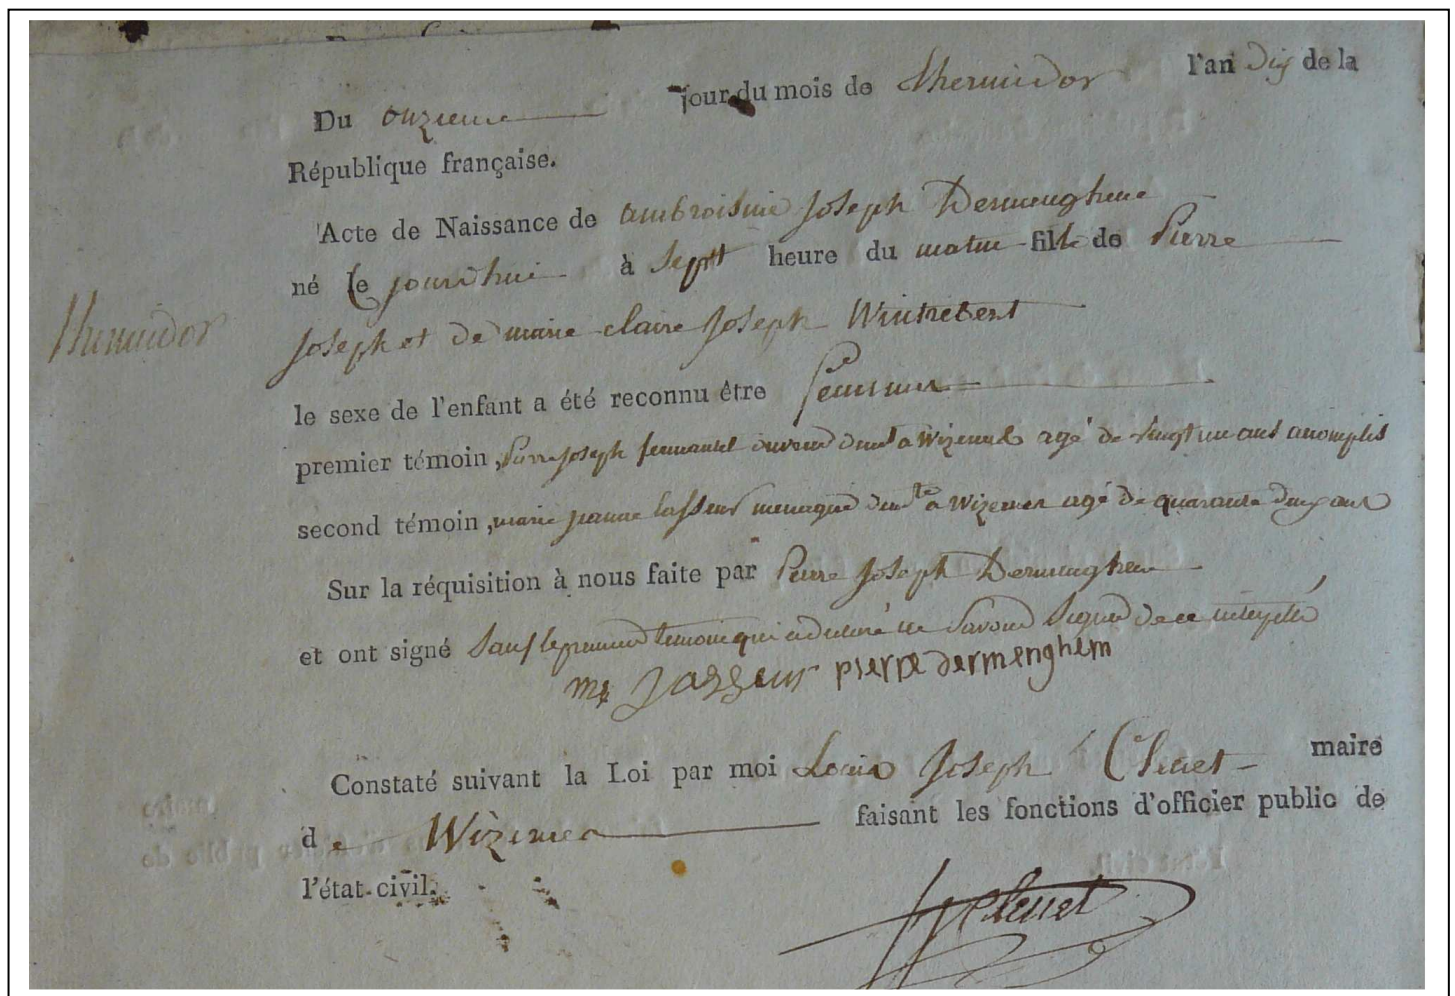 Du onzieme jour du mois de thermidor l'an Dix de la
République française.
Acte de Naissance de ambroisine Joseph Dermenghem
né le jourdhui à Sept heure du matin fille de Pierre
Joseph et de marie claire Joseph Wintrebert
Thermidor
le sexe de l'enfant a été reconnu être feminin
premier témoin, Pierre Joseph agé de vingt un ans accomplis
second témoin, marie jeanne Lasseur menagere demte a Wizernes agé de quarante deux ans
Sur la réquisition à nous faite par Pierre Joseph Dermenghem
et ont signé Sauf le premier temoin qui a declaré ne Savoir Signer de ce interpellé
Mj Lasseur pierre dermenghem
Constaté suivant la Loi par moi Louis Joseph Cleuet maire
de Wizernes faisant les fonctions d'officier public de
l'état-civil.
Cleuet